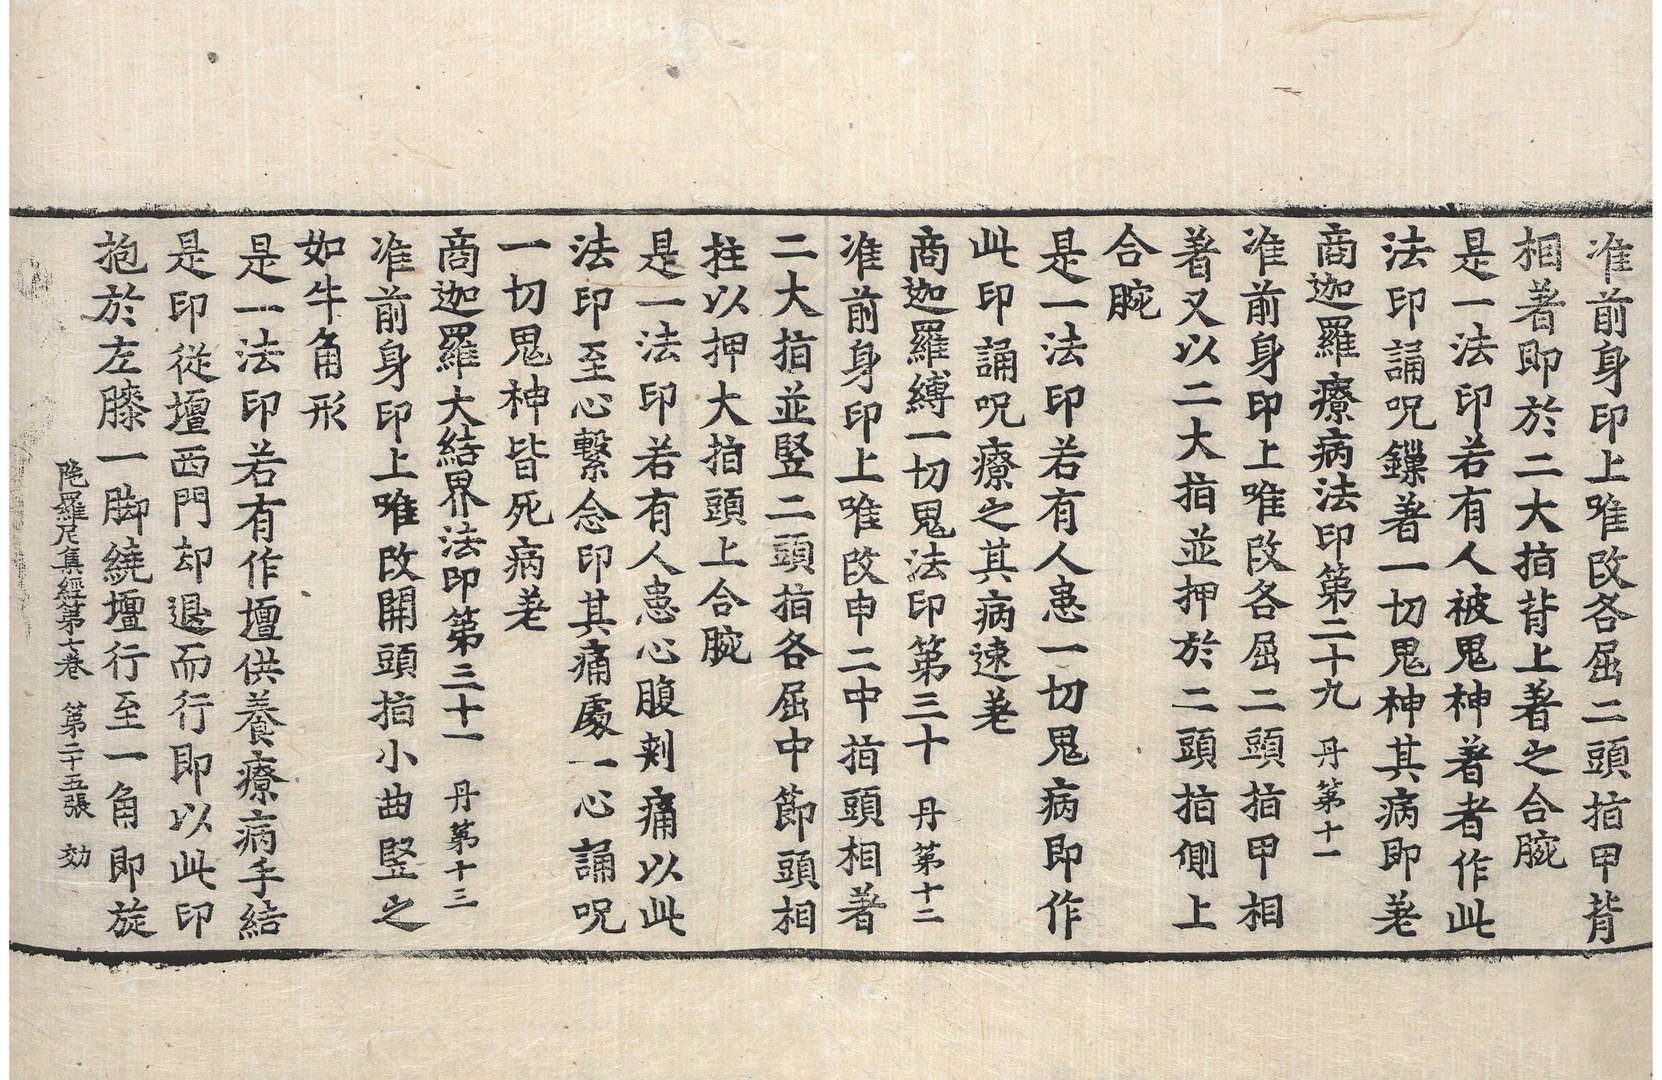 准前身印上唯改各屈二頭指甲背
相著即於二大指背上著之合腕
是一法印若有人被鬼神著者作此
法印誦呪鏁著一切鬼神其病即差
商迦羅療病法印第二十九 丹第十一
准前身印上唯改各屈二頭指甲相
著又以二大指並押於二頭指側上
合腕
是一法印若有人患一切鬼病即作
此印誦呪療之其病速差
商迦羅縛一切鬼法印第三十 丹第十二
准前身印上唯改申二中指頭相著
二大指並竪二頭指各屈中節頭相
拄以押大指頭上合腕
是一法印若有人患心腹刺痛以此
法印至心繫念印其痛處一心誦呪
一切鬼神皆死病差
商迦羅大結界法印第三十一 丹第十三
准前身印上唯改開頭指小曲竪之
如牛角形
是一法印若有作壇供養療病手結
是印從壇西門却退而行即以此印
抱於左膝一脚繞壇行至一角即旋
陁羅尼集經第七卷 第二十五張 効